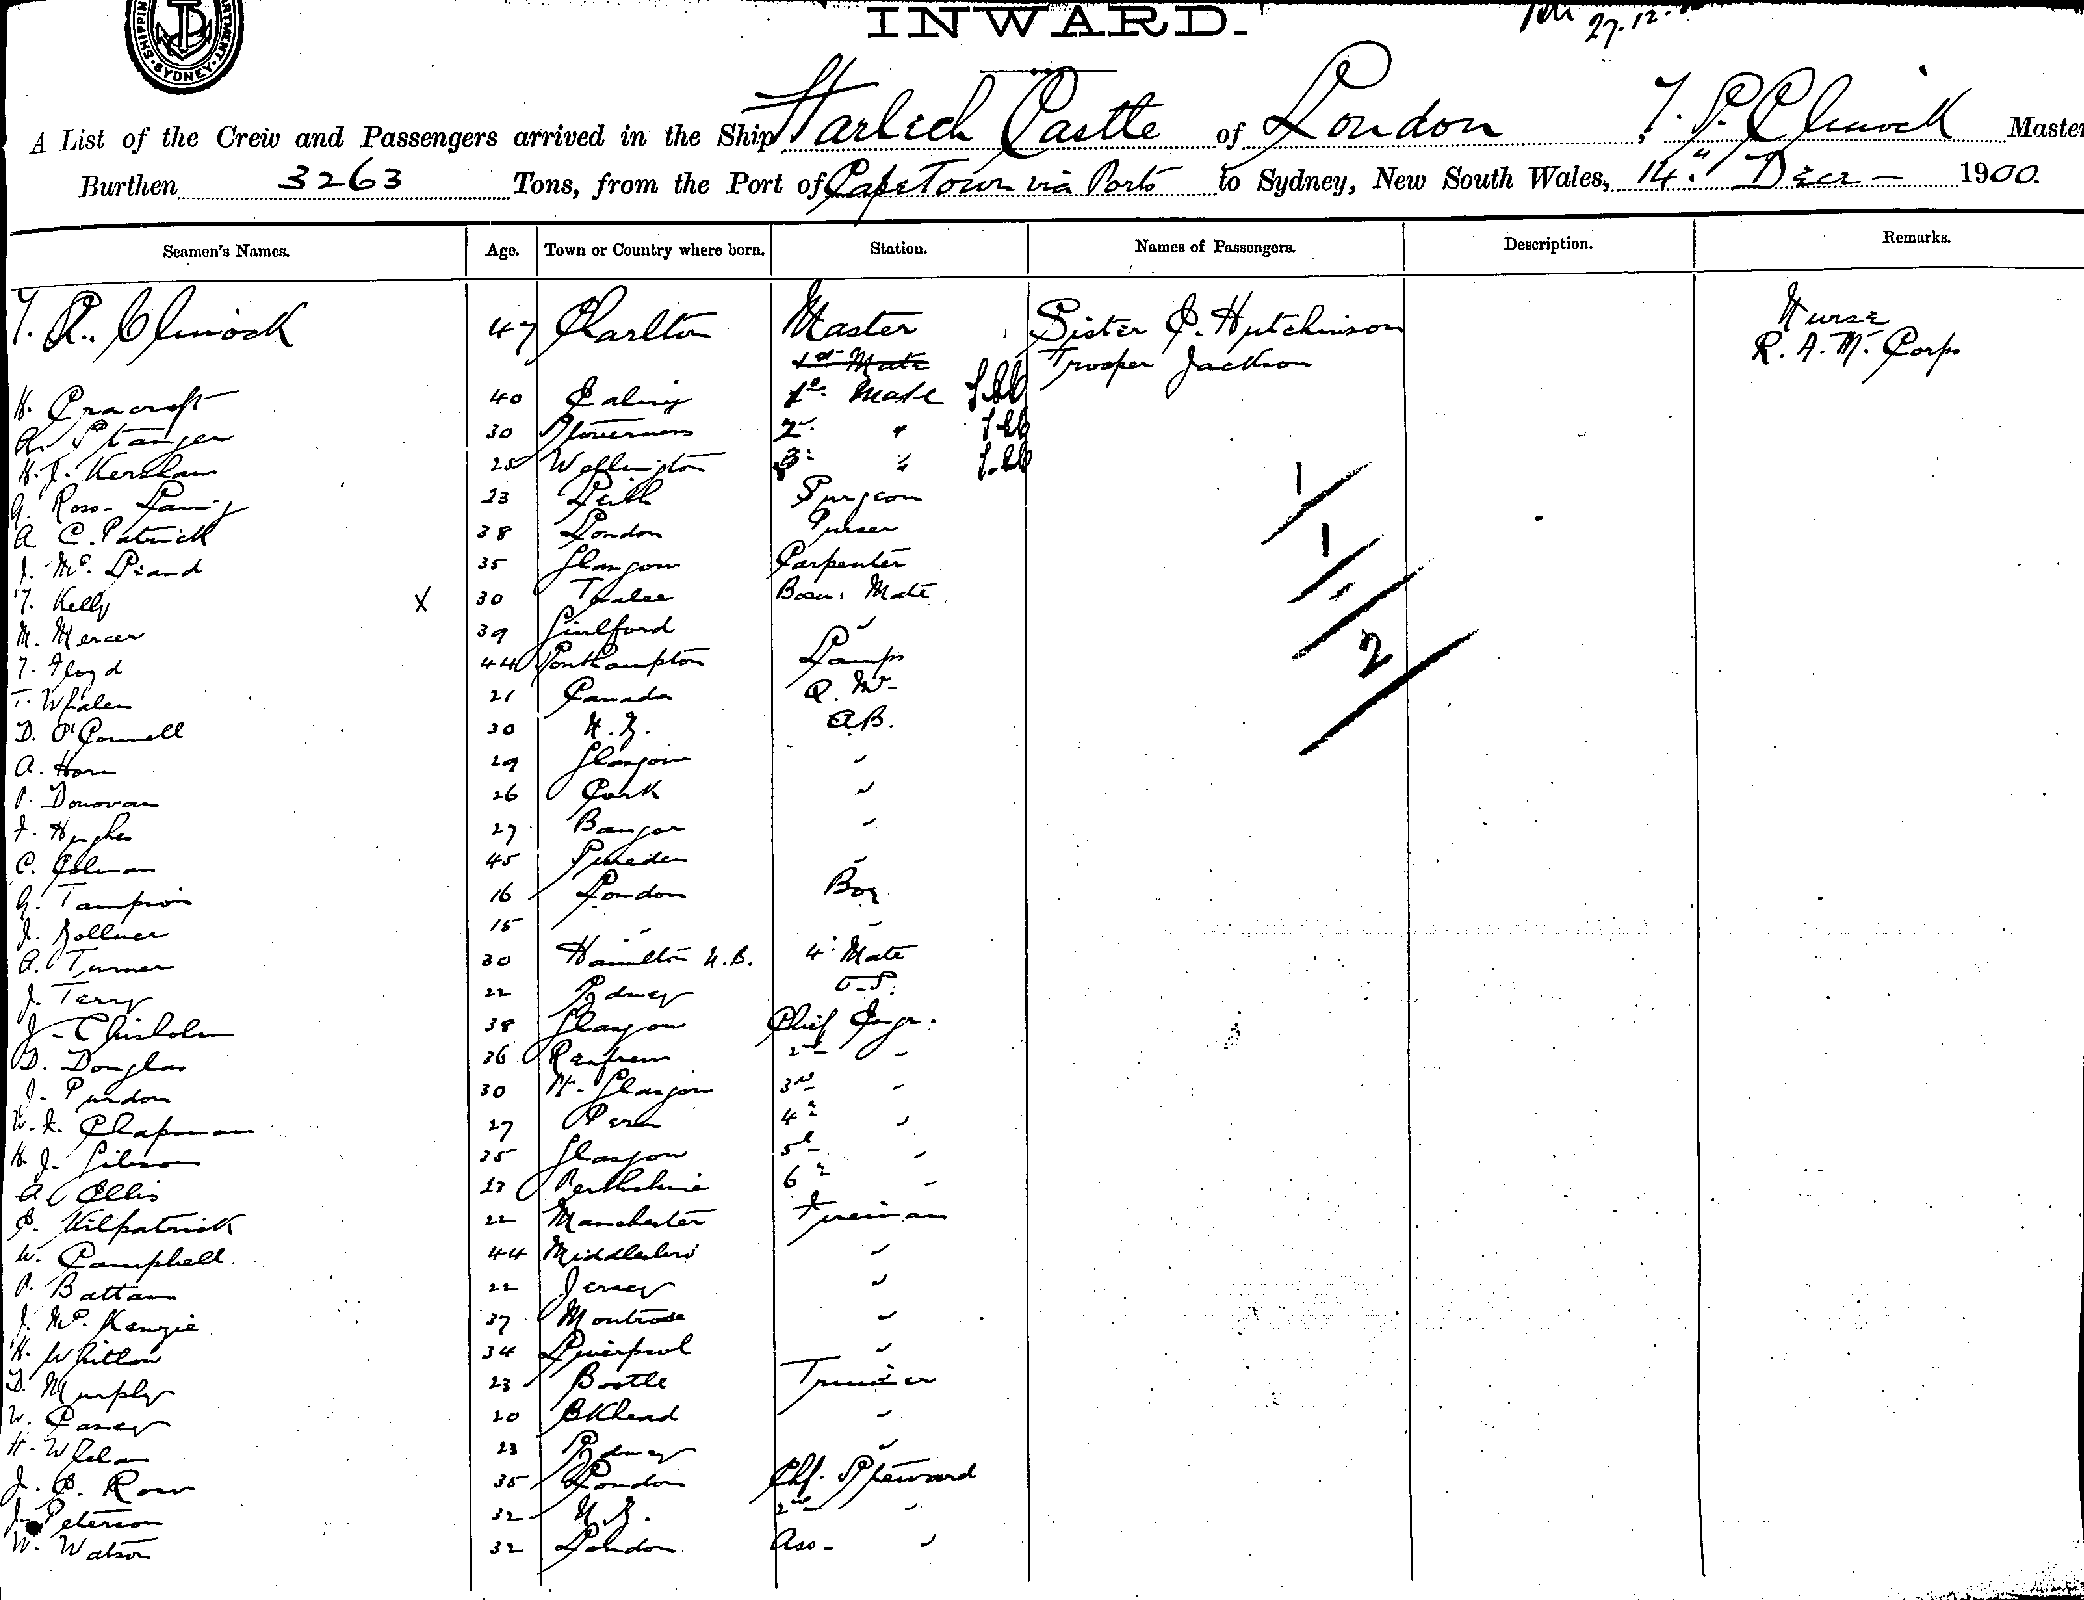 INWARD.
27.12.
A List of the Crew and Passengers arrived in the Ship Harlech Castle of London Master
Burthen 3263 Tons, from the Port of Cape Town via Ports to Sydney, New South Wales, 14th Decr 1900.
Seamen's Names. Age. Town or Country where born. Station. Names of Passengers. Description. Remarks.
47 Charlton Master Sister C. Hutchinson Nurse
1st Mate Trooper Jackson R. A. M. Corps
H. Cracroft 40 Ealing 1st Mate
A. Stanger 30 2nd "
H. J. Kershaw 25 Wellington 3rd "
G. Ross- 23 Leith Surgeon
A C. Patrick 38 London Purser
J. Mc. 35 Glasgow Carpenter
T. Kelly X 30 Tralee Bosn. Mate
M. Mercer 39 Guilford "
T. Floyd 44 Southampton Lamps
T. Whalen 21 Canada Q. M.
D. O'Connell 30 N. Z. A.B.
A. Horn 29 Glasgow "
P. Donovan 26 Cork "
J. Hughes 27 Bangor "
C. 45 Sweden "
G. Tampion 16 London Boy
J. Zollner 15 " "
A. Turner 30 Hamilton N.B. 4th Mate
J. Terry 22 Sydney O.S.
J. Chisholm 38 Glasgow Chief Engr.
D. Douglas 36 Renfrew 2nd "
J. Purdon 30 N. Glasgow 3rd "
W. R. Chapman 27 4th "
H. J. Gibson 25 Glasgow 5th "
A Ellis 23 Perthshire 6th "
C. Kilpatrick 22 Manchester Fireman
W. Campbell 44 Middlesbro "
P. Battam 22 Jersey "
J. Mc. Kenzie 37 Montrose "
H. Whitlow 34 Liverpool "
D. Murphy 23 Bootle Trimmer
W. Casey 20 BKhead "
H. Whelan 23 Sydney "
J. C. Row 35 London Chf. Steward
J. Peterson 32 N. Z. 2nd "
W. Watson 32 London Ass. "
1
1
2